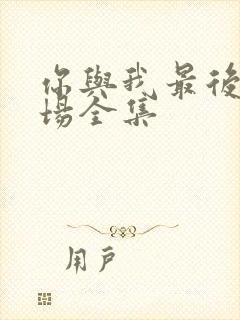 你與我最後
場全集
用戶